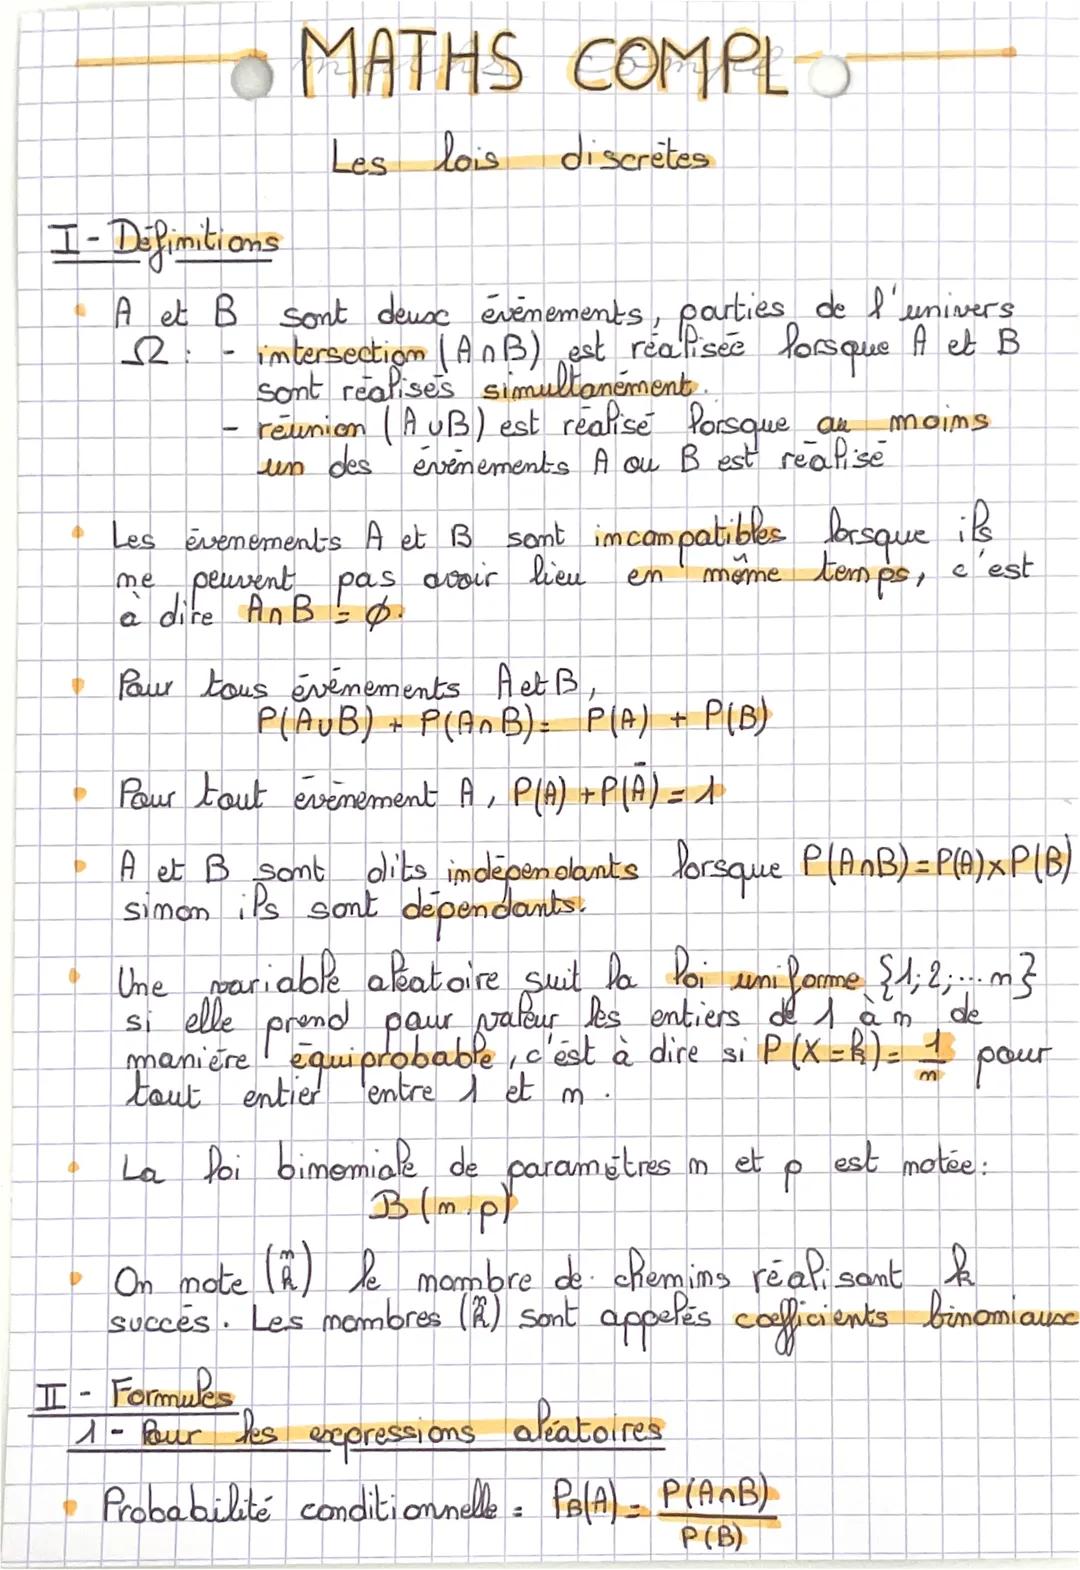 MATHS COMPL
Les lois discrètes
I - Définitions
A et B sont deux événements, parties de l'univers
Ω : - intersection (A∩B) est réalisée lorsque A et B
sont réalisés simultanément.
- réunion (A∪B) est réalisé lorsque au moins
un des événements A ou B est réalisé
Les évenements A et B sont incompatibles lorsque ils
ne peuvent pas avoir lieu en même temps, c'est
à dire A∩B = ∅.
Pour tous événements A et B,
P(A∪B) + P(A∩B) = P(A) + P(B)
Pour tout événement A, P(A) + P(Ā) = 1
A et B sont dits indépendants lorsque P(A∩B) = P(A)×P(B)
sinon ils sont dépendants.
Une variable aléatoire suit la loi uniforme {1; 2; ... n}
si elle prend pour valeur les entiers de 1 à n de
manière équiprobable, c'est à dire si P(X=k) = 1/n pour
tout entier entre 1 et n.
La loi binomiale de paramètres n et p est notée :
B(n.p)
On note (n k) le nombre de chemins réalisant k
succès. Les nombres (n k) sont appelés coefficients binomiaux
II - Formules
1 - Pour les expressions aléatoires
Probabilité conditionnelle = PB(A) = P(A∩B)
P(B)